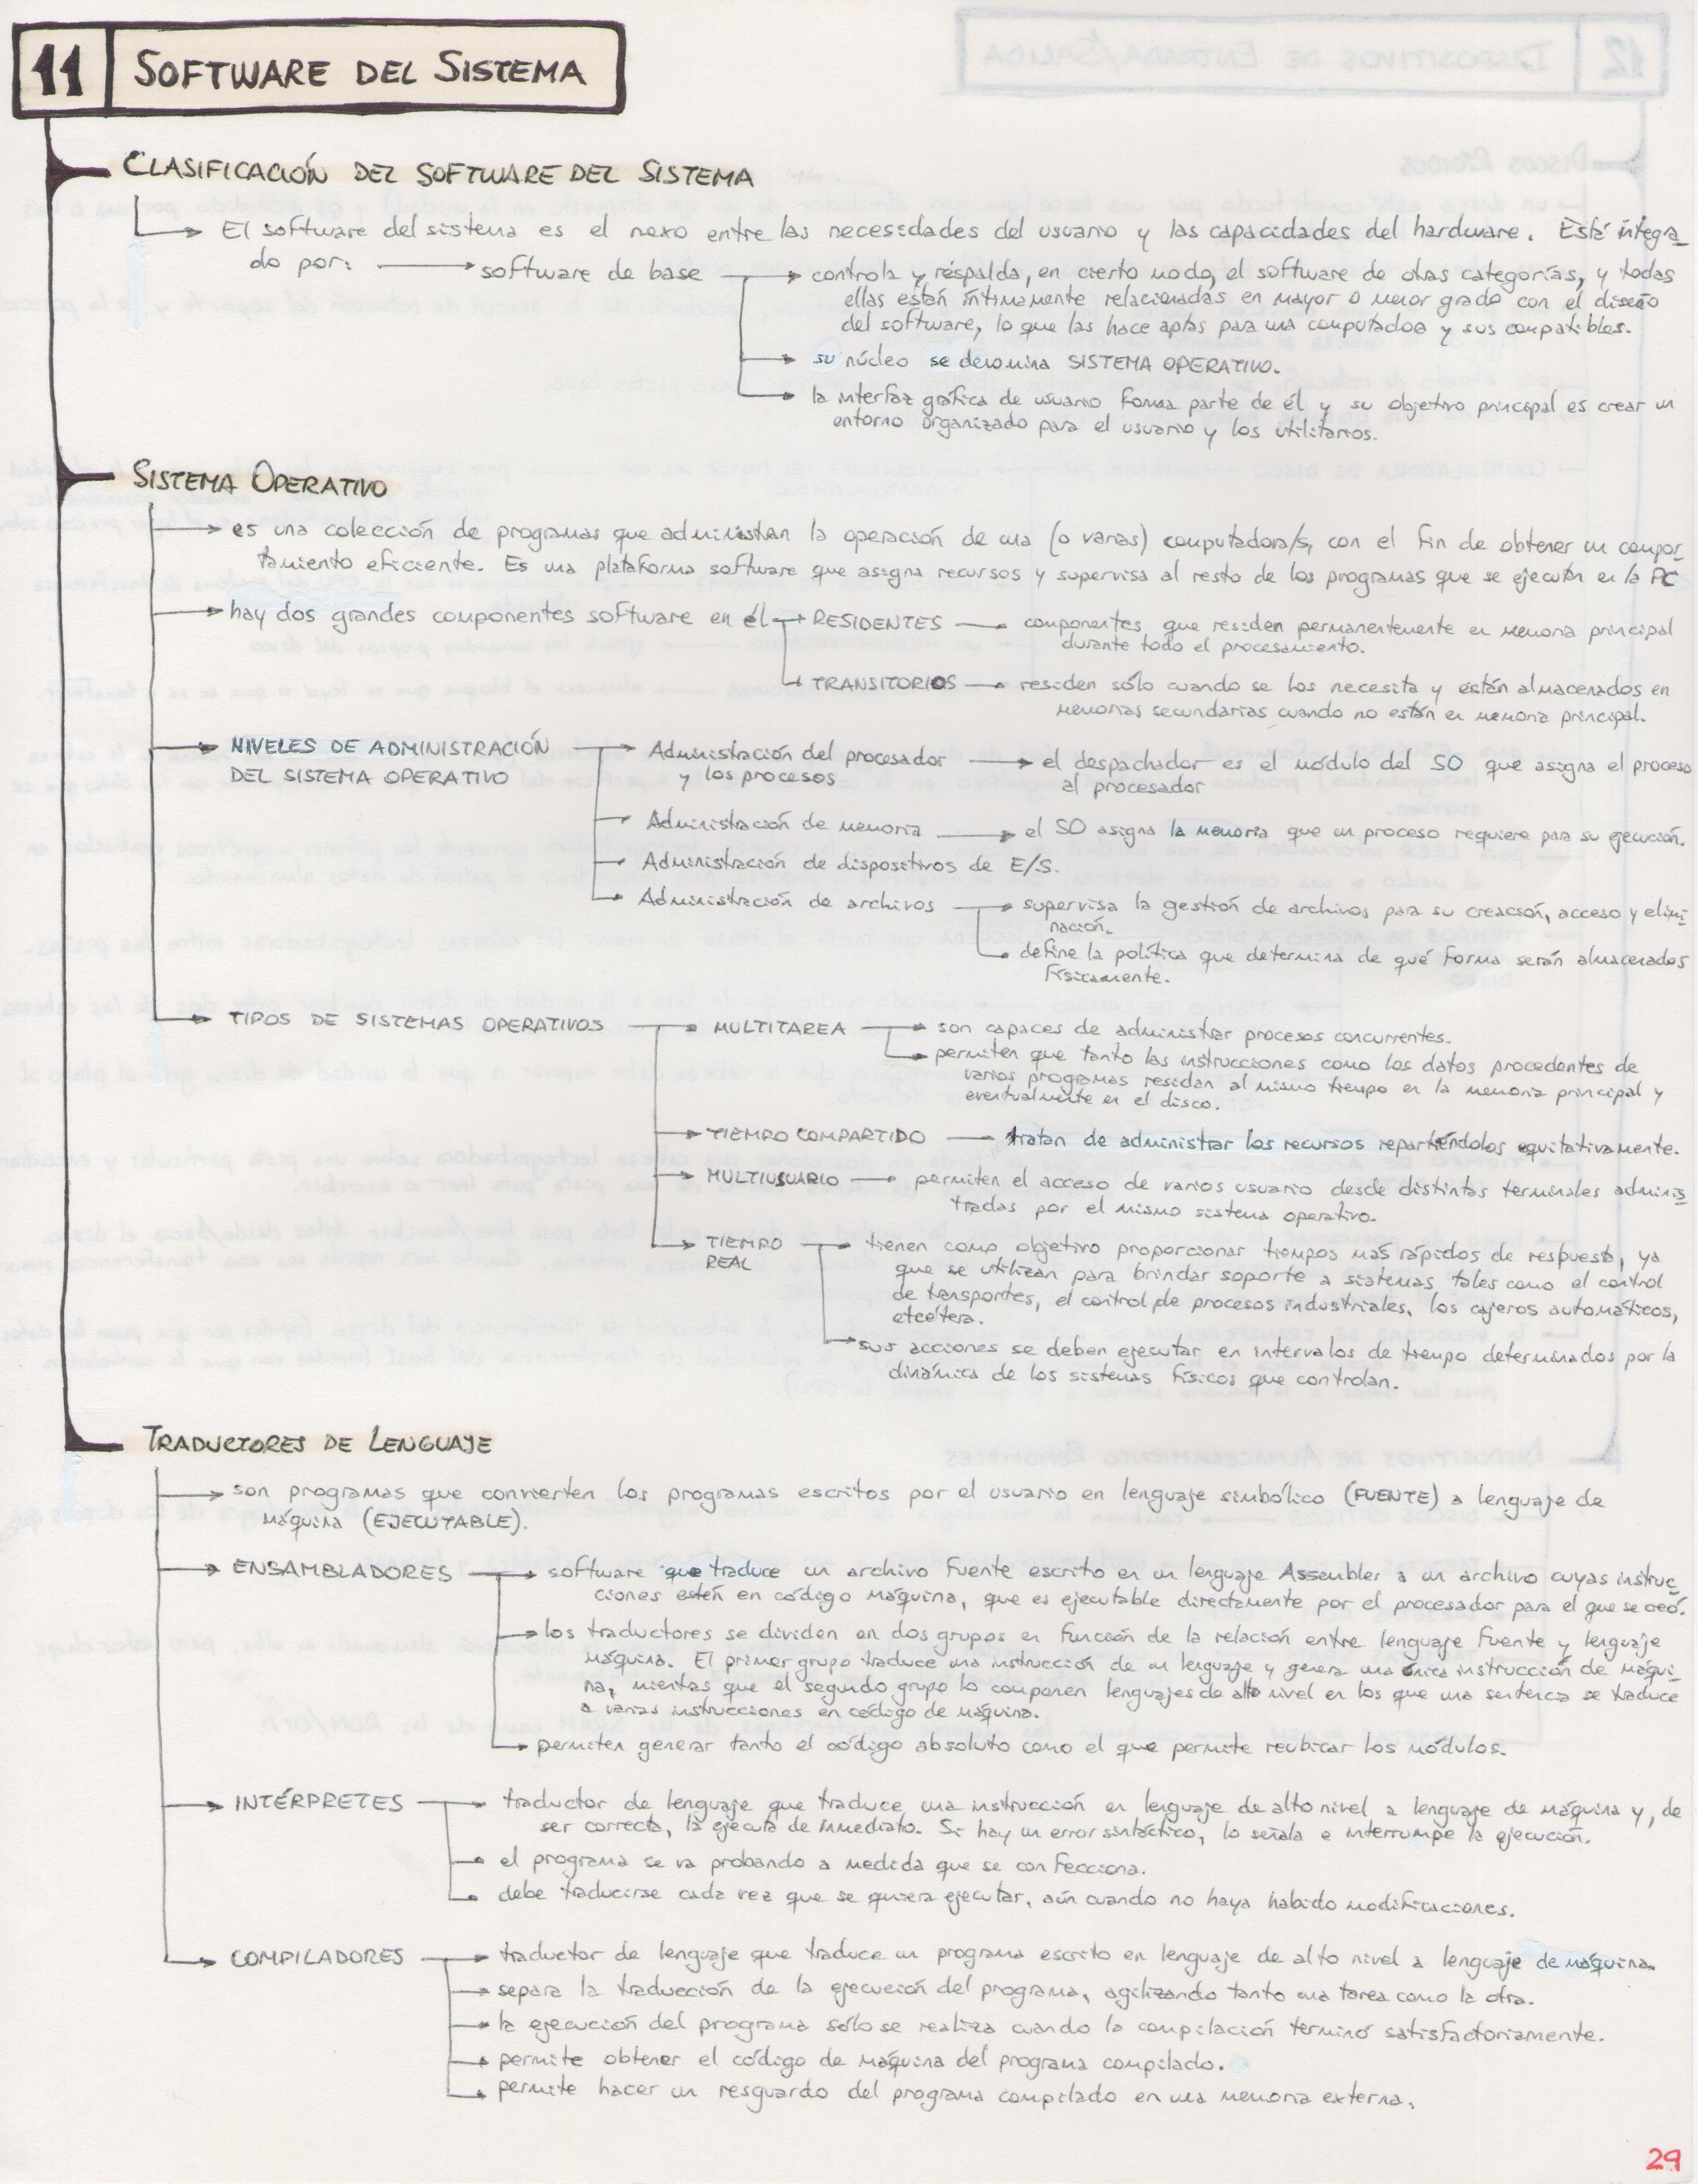 11 SOFTWARE DEL SISTEMA
CLASIFICACIÓN DEL SOFTWARE DEL SISTEMA
El software del sistema es el nexo entre las necesidades del usuario y las capacidades del hardware. Está integra-
do por: software de base controla y respalda, en cierto modo, el software de otras categorías, y todas
ellas están íntimamente relacionadas en mayor o menor grado con el diseño
del software, lo que las hace aptas para una computadora y sus compatibles.
su núcleo se denomina SISTEMA OPERATIVO.
la interfaz gráfica de usuario forma parte de él y su objetivo principal es crear un
entorno organizado para el usuario y los utilitarios.
SISTEMA OPERATIVO
es una colección de programas que administran la operación de una (o varias) computadora/s, con el fin de obtener un compor-
tamiento eficiente. Es una plataforma software que asigna recursos y supervisa al resto de los programas que se ejecutan en la PC
hay dos grandes componentes software en él RESIDENTES componentes que residen permanentemente en memoria principal
durante todo el procesamiento.
TRANSITORIOS residen sólo cuando se los necesita y están almacenados en
memorias secundarias cuando no están en memoria principal.
NIVELES DE ADMINISTRACIÓN Administración del procesador el despachador es el módulo del SO que asigna el proceso
DEL SISTEMA OPERATIVO y los procesos al procesador
Administración de memoria el SO asigna la memoria que un proceso requiere para su ejecución.
Administración de dispositivos de E/S.
Administración de archivos supervisa la gestión de archivos para su creación, acceso y elimi-
nación.
define la política que determina de qué forma serán almacenados
físicamente.
TIPOS DE SISTEMAS OPERATIVOS MULTITAREA son capaces de administrar procesos concurrentes.
permiten que tanto las instrucciones como los datos procedentes de
varios programas residan al mismo tiempo en la memoria principal y
eventualmente en el disco.
TIEMPO COMPARTIDO tratan de administrar los recursos repartiéndolos equitativamente.
MULTIUSUARIO permiten el acceso de varios usuario desde distintas terminales adminis-
tradas por el mismo sistema operativo.
TIEMPO tienen como objetivo proporcionar tiempos más rápidos de respuesta, ya
REAL que se utilizan para brindar soporte a sistemas tales como el control
de transportes, el control de procesos industriales, los cajeros automáticos,
etcétera.
sus acciones se deben ejecutar en intervalos de tiempo determinados por la
dinámica de los sistemas físicos que controlan.
TRADUCTORES DE LENGUAJE
son programas que convierten los programas escritos por el usuario en lenguaje simbólico (FUENTE) a lenguaje de
máquina (EJECUTABLE).
ENSAMBLADORES software que traduce un archivo fuente escrito en un lenguaje Assembler a un archivo cuyas instruc-
ciones estén en código máquina, que es ejecutable directamente por el procesador para el que se creó.
los traductores se dividen en dos grupos en función de la relación entre lenguaje fuente y lenguaje
máquina. El primer grupo traduce una instrucción de un lenguaje y genera una única instrucción de máqui-
na, mientas que el segundo grupo lo componen lenguajes de alto nivel en los que una sentencia se traduce
a varias instrucciones en código de máquina.
permiten generar tanto el código absoluto como el que permite reubicar los módulos.
INTÉRPRETES traductor de lenguaje que traduce una instrucción en lenguaje de alto nivel a lenguaje de máquina y, de
ser correcta, la ejecuta de inmediato. Si hay un error sintáctico, lo señala e interrumpe la ejecución.
el programa se va probando a medida que se confecciona.
debe traducirse cada vez que se quiera ejecutar, aún cuando no haya habido modificaciones.
COMPILADORES traductor de lenguaje que traduce un programa escrito en lenguaje de alto nivel a lenguaje de máquina.
separa la traducción de la ejecución del programa, agilizando tanto una tarea como la otra.
la ejecución del programa sólo se realiza cuando la compilación terminó satisfactoriamente.
permite obtener el código de máquina del programa compilado.
permite hacer un resguardo del programa compilado en una memoria externa.
29